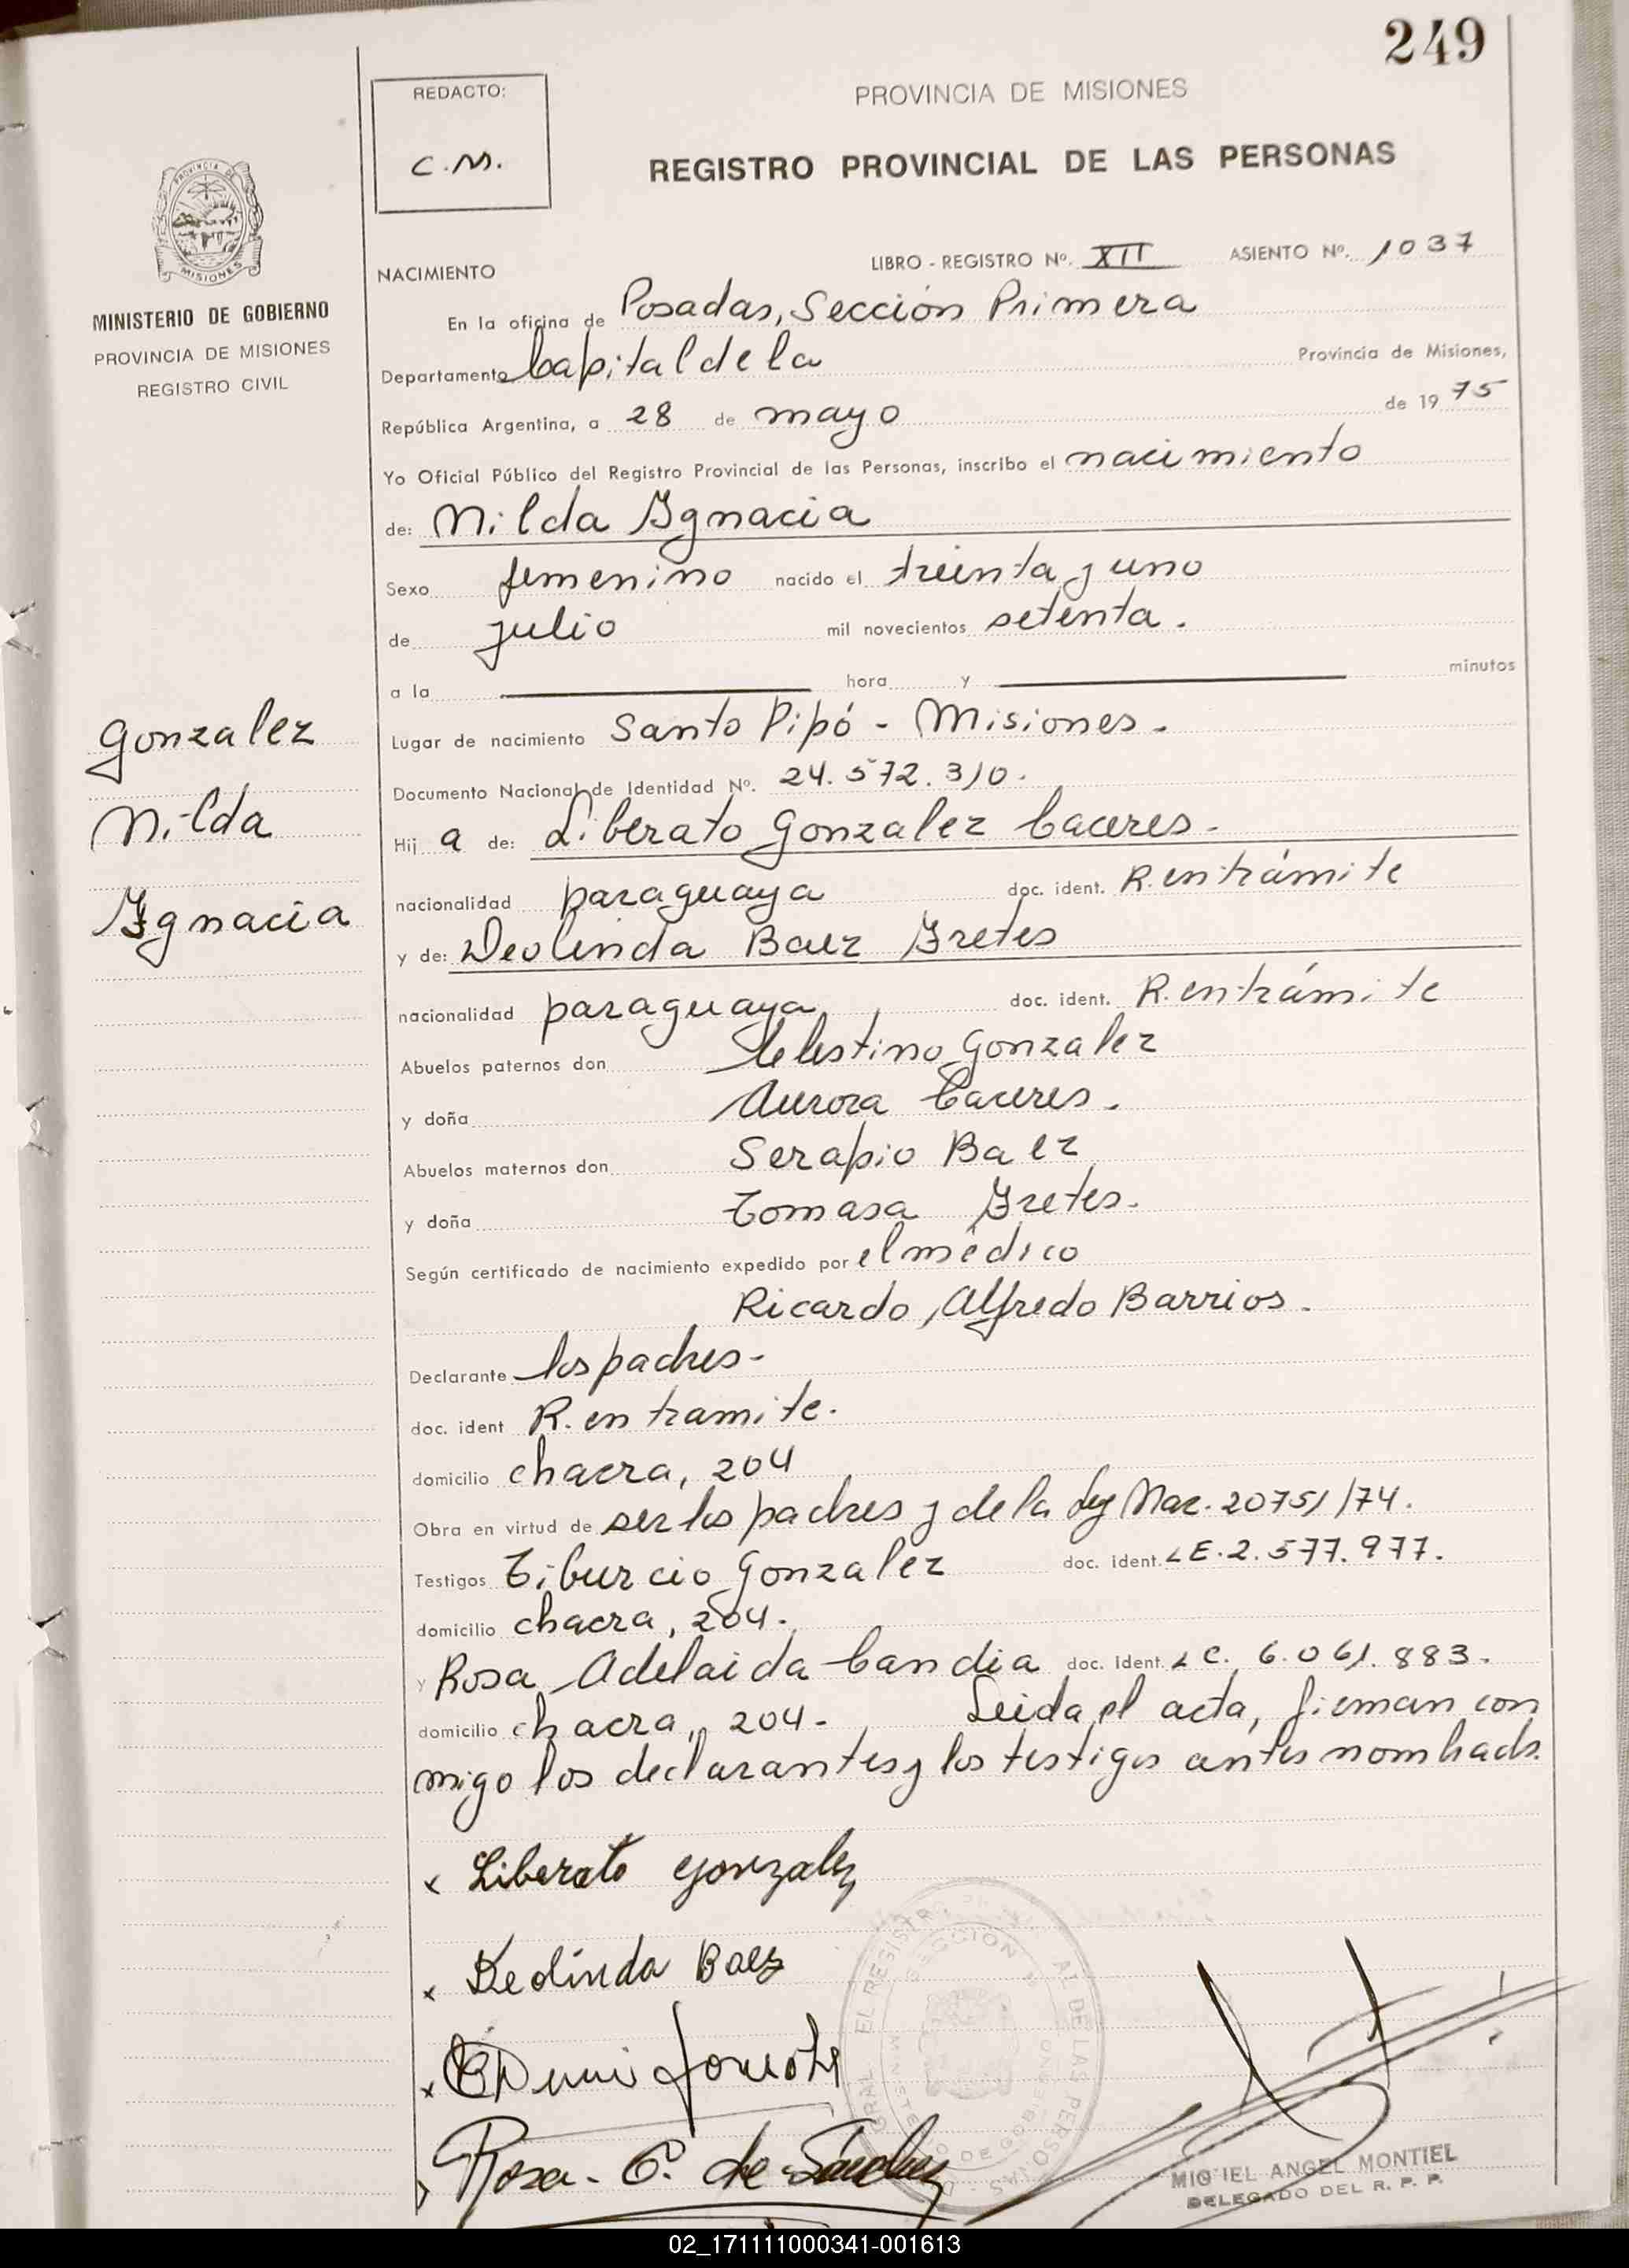 249
REDACTO:
C.M.
PROVINCIA DE MISIONES
REGISTRO PROVINCIAL DE LAS PERSONAS
PROVINCIA DE
MISIONES
MINISTERIO DE GOBIERNO
PROVINCIA DE MISIONES
REGISTRO CIVIL
NACIMIENTO
LIBRO - REGISTRO Nº. XII ASIENTO Nº. 1037
En la oficina de Posadas, Sección Primera
Departamento Capital de la Provincia de Misiones,
República Argentina, a 28 de mayo de 1975
Yo Oficial Público del Registro Provincial de las Personas, inscribo el nacimiento
de: Nilda Ygnacia
Sexo femenino nacido el treinta y uno
de julio mil novecientos setenta.
a la hora y minutos
Gonzalez
Nilda
Ygnacia
Lugar de nacimiento Santo Pipó - Misiones.
Documento Nacional de Identidad Nº. 24.572.310.
Hij a de: Liberato Gonzalez Caceres.
nacionalidad paraguaya doc. ident. R. en trámite
y de: Deolinda Baez Yretes
nacionalidad paraguaya doc. ident. R. en trámite
Abuelos paternos don Celestino Gonzalez
y doña Aurora Caceres.
Abuelos maternos don Serapio Baez
y doña Tomasa Yretes.
Según certificado de nacimiento expedido por el médico
Ricardo Alfredo Barrios.
Declarante los padres-
doc. ident R. en tramite.
domicilio chacra, 204
Obra en virtud de ser los padres y de la Ley Nac. 20751/74.
Testigos Tiburcio Gonzalez doc. ident. LE. 2.577.977.
domicilio chacra, 204.
y Rosa Adelaida Candia doc. ident. LC. 6.061.883.
domicilio chacra, 204- Leida el acta, firman con
migo los declarantes y los testigos antes nombrads.
x Liberato Gonzalez
x Deolinda Baez
x
Rosa. C. de Sánchez
MIGUEL ANGEL MONTIEL
DELEGADO DEL R. P. P.
02_171111000341-001613